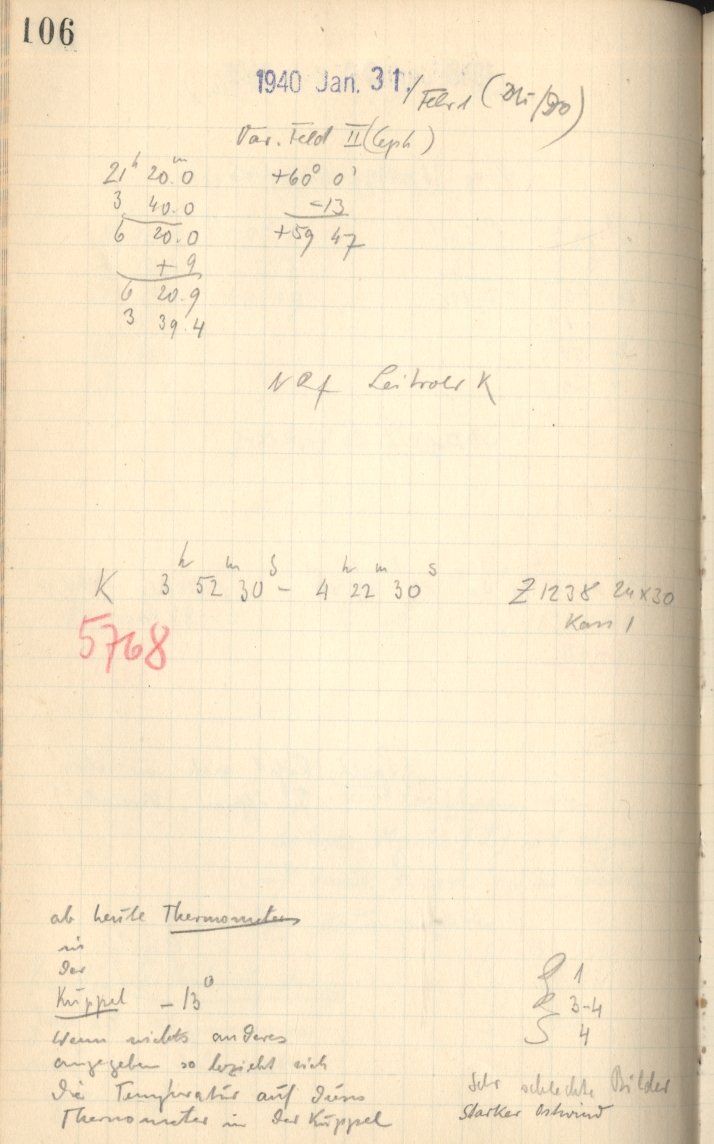 106
1940 Jan. 31./Febr 1 (Mi/Do)
Var. Feld II (Ceph)
21h 20.m0 +60° 0'
3 40.0 -13
6 20.0 +59 47
+ 9
6 20.9
3 39.4
Leitrohr K
K 3h 52m 30s - 4h 22m 30s Z1238 24x30
Kass 1
5768
ab heute Thermometer
in
der
Kuppel -13°
Wenn nichts anderes
angegeben so bezieht sich
die Temperatur auf dieses
Thermometer in der Kuppel
1
R 3-4
S 4
Sehr schlechte Bilder
Starker Ostwind